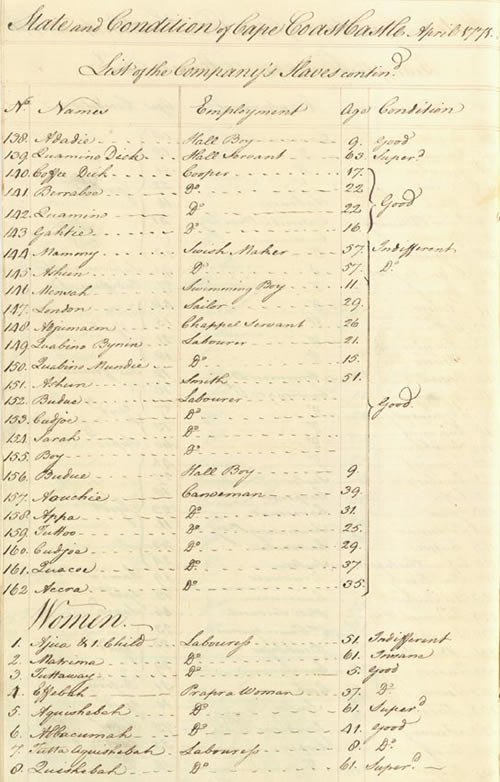 State and Condition of Cape Coast Castle April 1778.
List of the Company's Slaves contin.d
No. Names Employment Age Condition
138. Adadie Hall Boy 9. Good
139. Quamino Dick Hall Servant 63. Super.d
140. Coffee Dick Cooper 17.
141. Berraboe Do. 22
142. Quamin Do. 22 Good
143 Gahtie Do. 16.
144. Mammy Swish Maker 57. Indifferent
145. Ashun Do. 57. Do.
146. Mensah Swimming Boy 11.
147. London Sailor 29.
148. Chappel Servant 26
149. Quabino Bynin Labourer 21.
150. Quabino Mundie Do. 15.
151. Ashun Smith 51.
152. Budue Labourer Good
153. Cudjoe Do.
154. Sarah Do.
155. Boy Do.
156. Budue Hall Boy 9.
157. Aouchie Canoeman 39.
158. Appa Do. 31.
159. Tuttoo Do. 25.
160. Cudjoe Do. 29.
161. Quacoe Do. 37
162 Accra Do. 35.
Women.
1. Ajua & 1. Child Labouress 51. Indifferent
2. Matrima Do. 61. Insane
3. Tuttaway Do. 5. Good
4. Effebah Prapra Woman 37. Do.
5. Aquishebah Do. 61. Super.d
6. Abbacumah Do. 41. Good
7. Tutta Aquishebah Labouress 8. Do.
8. Quishebah Do. 61. Super.d